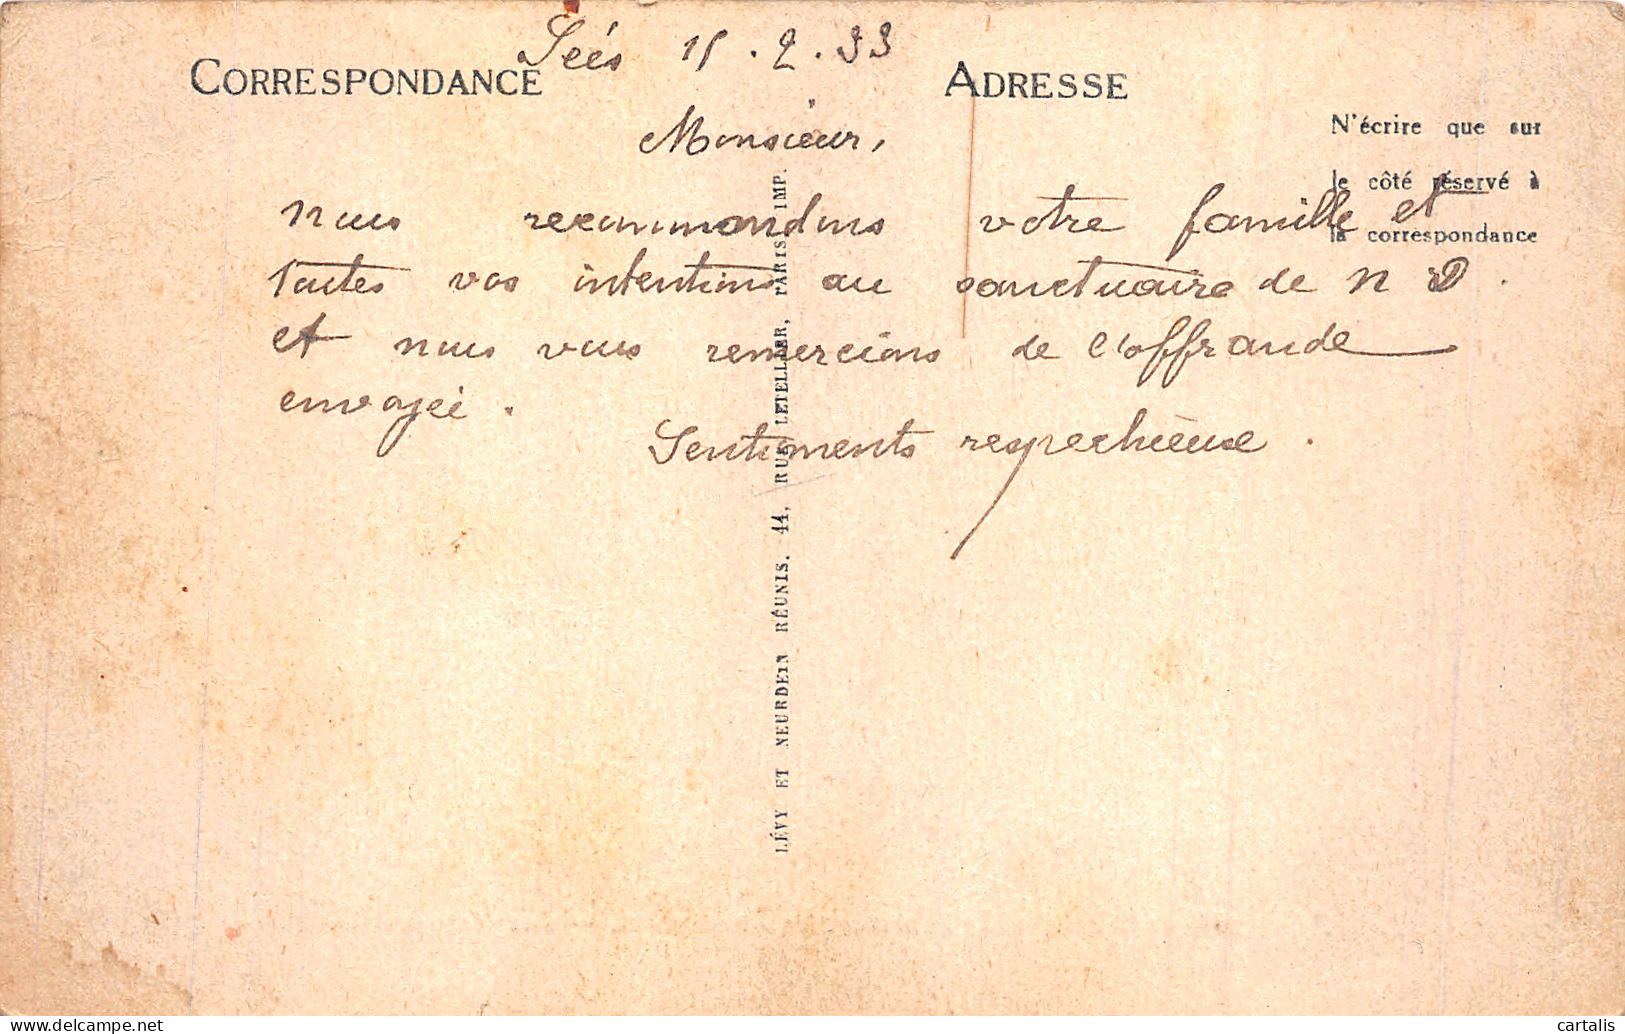 Sées 15.2.33
CORRESPONDANCE
ADRESSE
N'écrire que sur
le côté réservé à
la correspondance
Monsieur,
nous recommandons votre famille et
toutes vos intentions au sanctuaire de N D.
et nous vous remercions de l'offrande
envoyée.
Sentiments respectueux.
LÉVY ET NEURDEIN RÉUNIS. 44, RUE LETELLIER, PARIS IMP.
© delcampe.net
cartalis